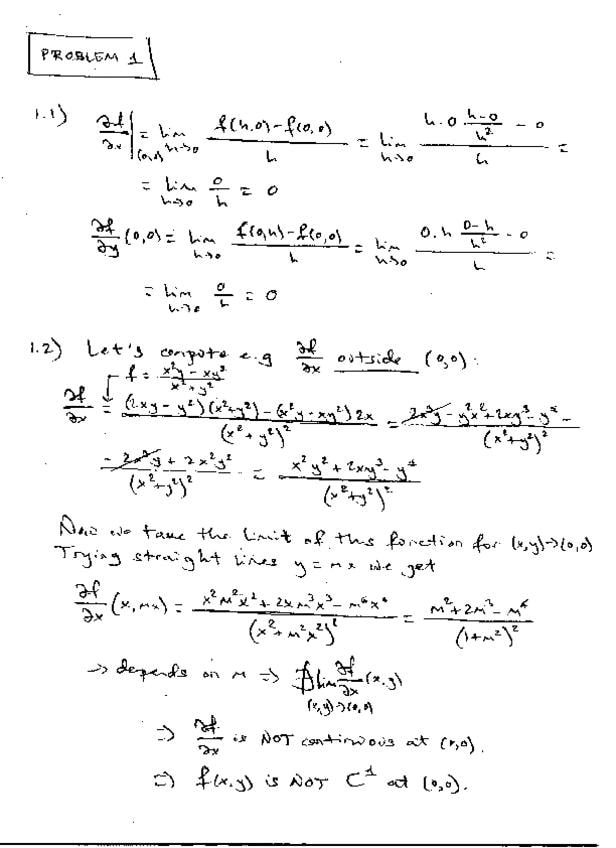 PROBLEM 1
1.1) ∂f/∂x|(0,0) = lim h→0 (f(h,0) - f(0,0))/h = lim h→0 (h·0·(h-0)/h² - 0)/h =
= lim h→0 0/h = 0
∂f/∂y (0,0) = lim h→0 (f(0,h) - f(0,0))/h = lim h→0 (0·h (0-h)/h² - 0)/h =
= lim h→0 0/h = 0
1.2) Let's compute e.g ∂f/∂x outside (0,0):
f = (x²y - xy²)/(x²+y²)
∂f/∂x = ((2xy - y²)(x²+y²) - (x²y - xy²)2x)/(x²+y²)² = (2x³y - y²x² + 2xy³ - y⁴ -
- 2x³y + 2x²y²)/(x²+y²)² = (x²y² + 2xy³ - y⁴)/(x²+y²)²
Now we take the limit of this function for (x,y)→(0,0)
Trying straight lines y = mx we get
∂f/∂x (x, mx) = (x²m²x² + 2xm³x³ - m⁴x⁴)/(x²+m²x²)² = (m² + 2m³ - m⁴)/(1+m²)²
→ depends on m ⇒ ∄ lim (x,y)→(0,0) ∂f/∂x (x,y)
⇒ ∂f/∂x is NOT continuous at (0,0).
⇒ f(x,y) is NOT C¹ at (0,0).